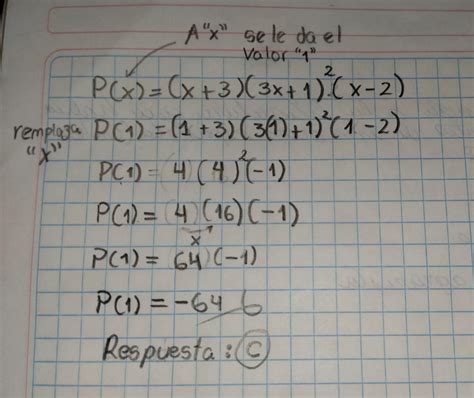 A "x" se le da el
valor "1"
P(x) = (x + 3)(3x + 1)²(x - 2)
remplaza "x"
P(1) = (1 + 3)(3(1) + 1)²(1 - 2)
P(1) = (4)(4)²(-1)
P(1) = (4)(16)(-1)
x
P(1) = 64)(-1)
P(1) = -64
Respuesta : C